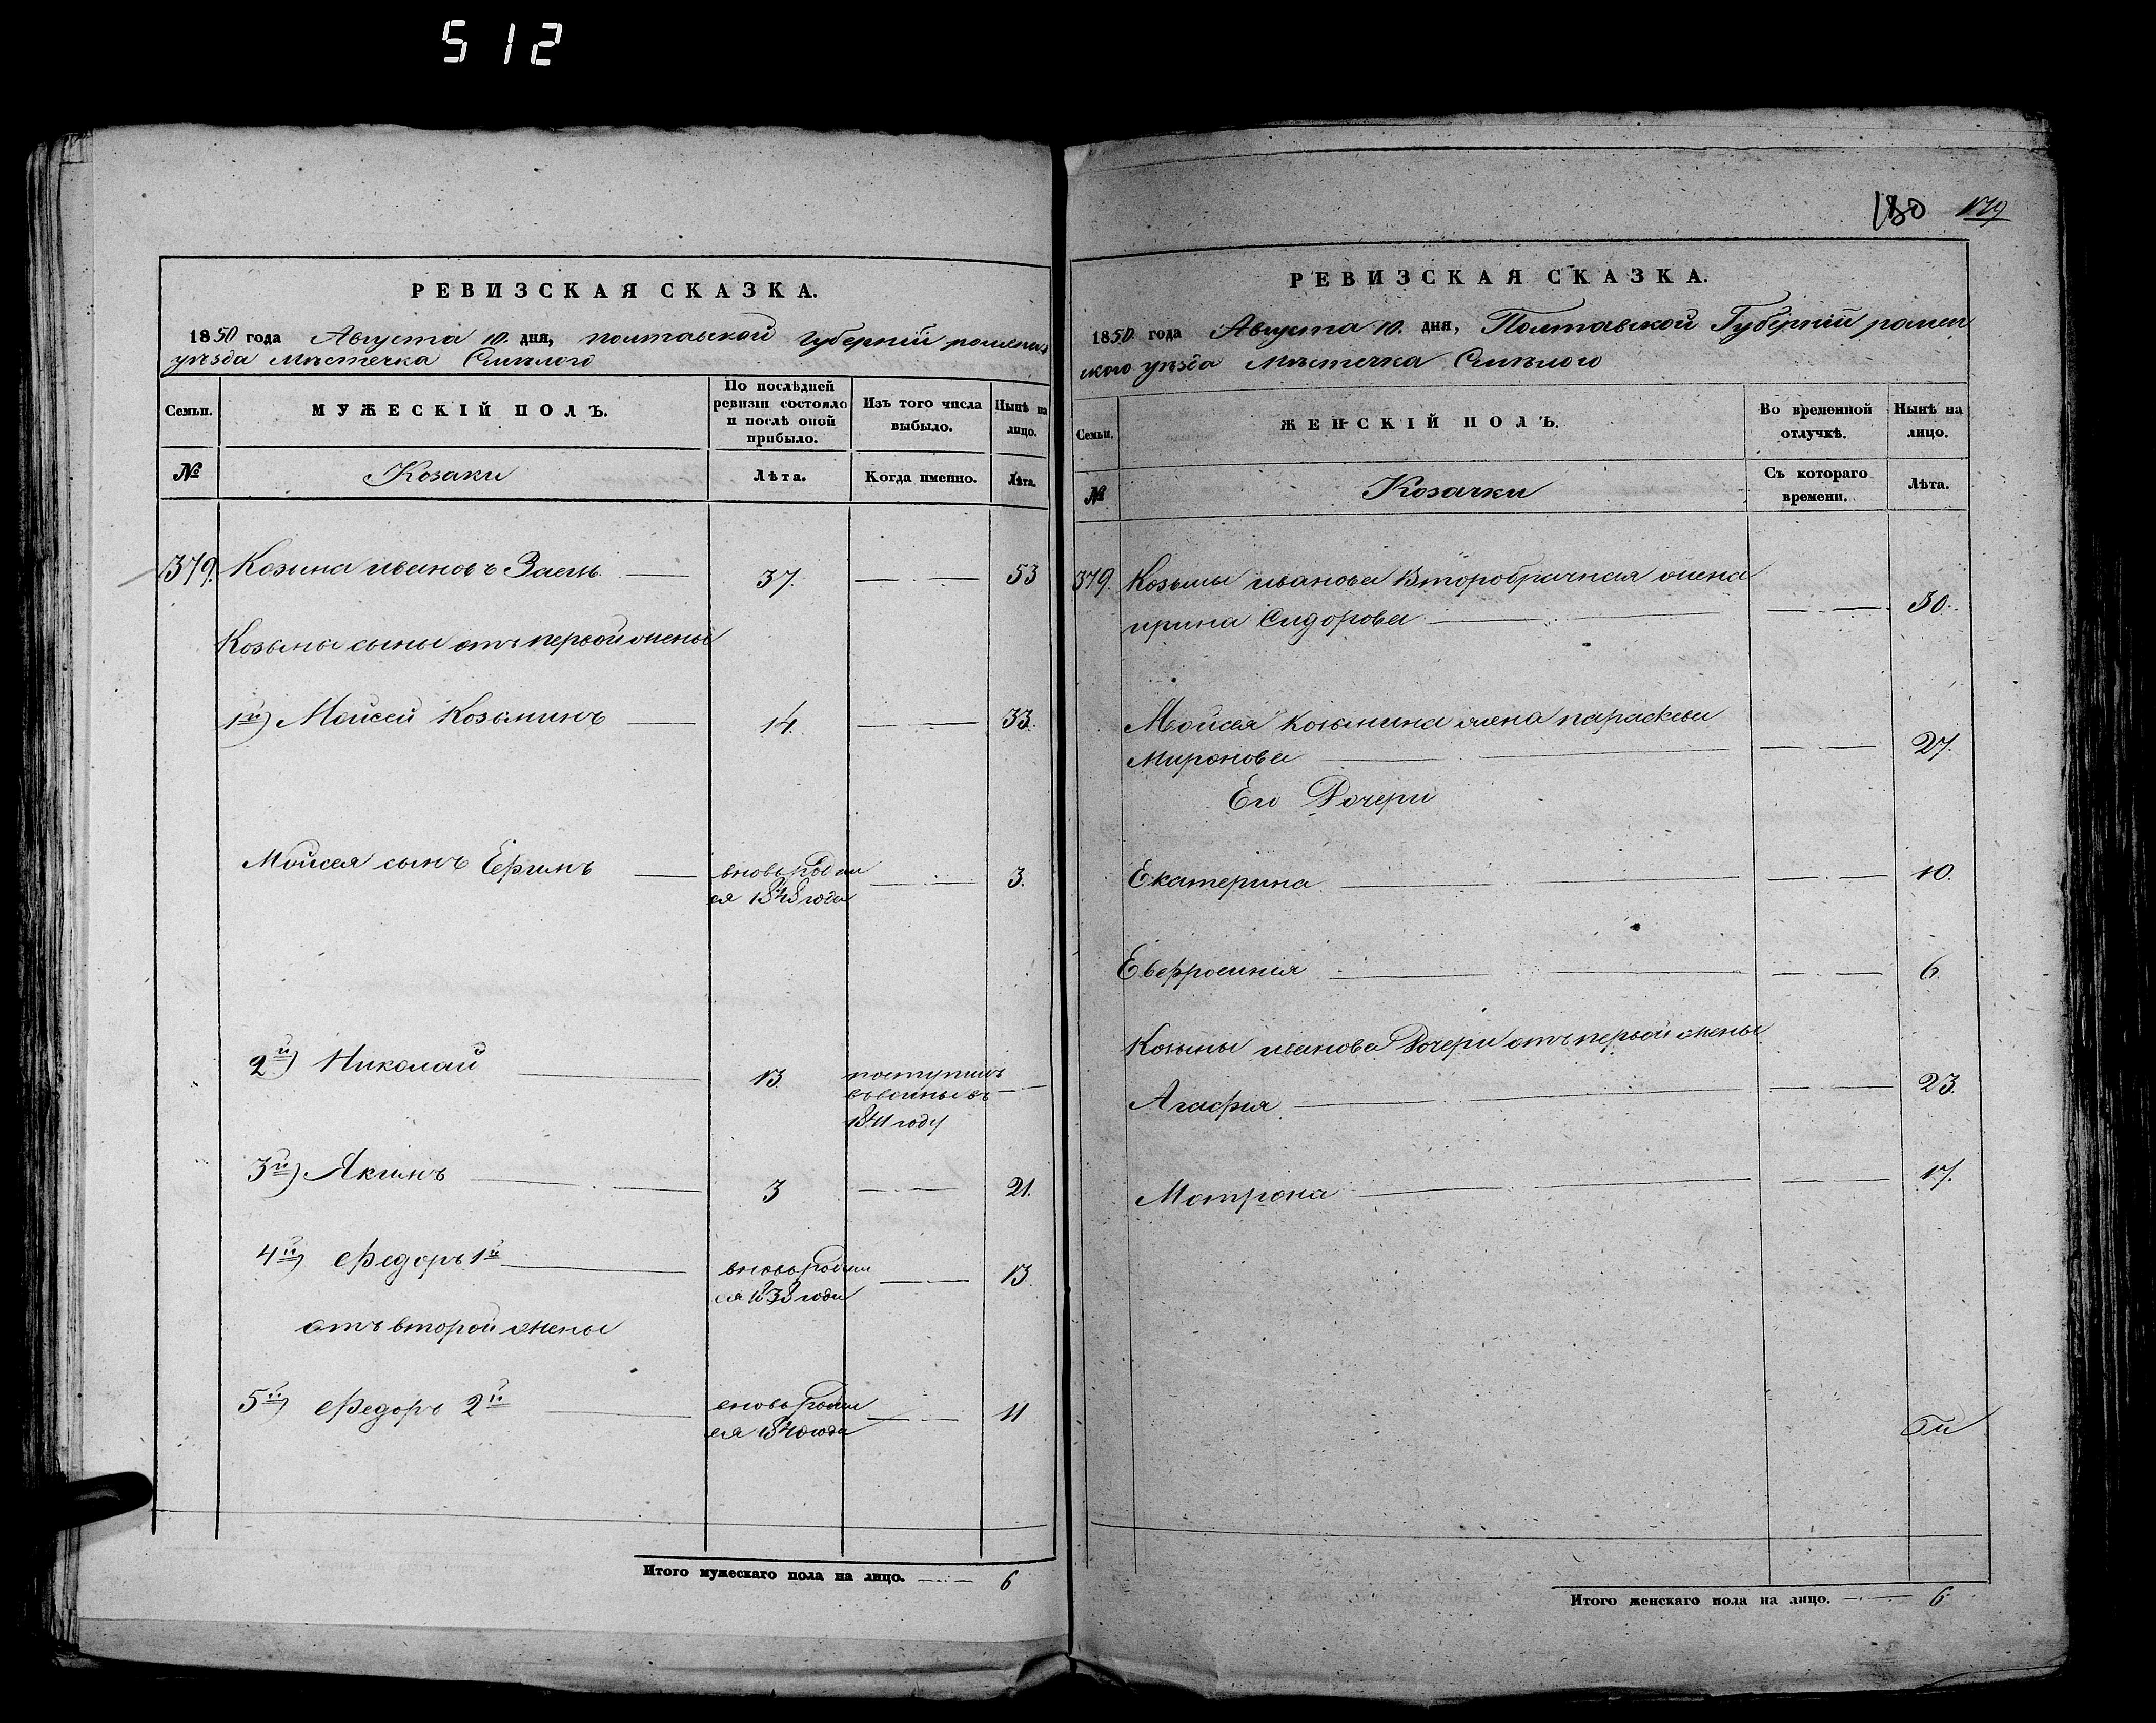 512
РЕВИЗСКАЯ СКАЗКА.
1850 года Августа 10. дня, полтавской губерніи роменск
уѣзда Мѣстечка Смѣлого
Семьи.
МУЖЕСКІЙ ПОЛЪ.
По послѣдней ревизіи состояло и послѣ оной прибыло.
Изъ того числа выбыло.
Нынѣ на лицо.
№
Козаки
Лѣта.
Когда именно.
Лѣта.
379. Козьма ивановъ Заецъ 37. 53
Козьмы сыны отъ первой жены
1й) Мойсей Козьминъ 14. 33.
Мойсея сынъ Ефимъ вновь родил
ся 1848 года 3.
2й) Николай 13. поступилъ
въ
1841 году
3й) Якимъ 3 21.
4й) Федоръ 1й вновь родил
ся 1838 года 13.
отъ второй жены
5й) Федоръ 2й вновь родил
ся 1840 года 11
Итого мужескаго пола на лицо. 6
180 179
РЕВИЗСКАЯ СКАЗКА.
1850 года Августа 10. дня, Полтавской Губерніи ромен
ского уѣзда Мѣстечка Смѣлого
Семьи.
ЖЕНСКІЙ ПОЛЪ.
Во временной отлучкѣ.
Нынѣ на лицо.
№
Козачки
Съ котораго времени.
Лѣта.
379. Козьмы иванова Второбрачная жена
ирина Сидорова 50.
Мойсея Козьмина жена параскева
Миронова 27.
Его Дочери
Екатерина 10.
Евфросинія 6.
Козьмы иванова Дочери отъ первой жены
Агафия 23.
Мотрона 17.
Итого женскаго пола на лицо. 6